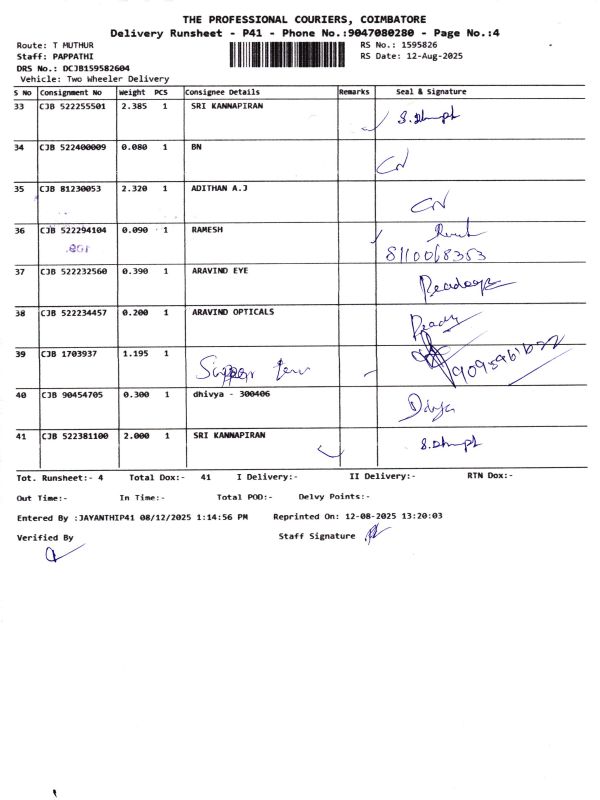 THE PROFESSIONAL COURIERS, COIMBATORE
Delivery Runsheet - P41 - Phone No.:9047080280 - Page No.:4
Route: T MUTHUR RS No.: 1595826
Staff: PAPPATHI RS Date: 12-Aug-2025
DRS No.: DCJB159582604
Vehicle: Two Wheeler Delivery
S No Consignment No Weight PCS Consignee Details Remarks Seal & Signature
33 CJB 522255501 2.385 1 SRI KANNAPIRAN
34 CJB 522400009 0.080 1 BN
35 CJB 81230053 2.320 1 ADITHAN A.J
36 CJB 522294104 0.090 1 RAMESH
8110068353
37 CJB 522232560 0.390 1 ARAVIND EYE
38 CJB 522234457 0.200 1 ARAVIND OPTICALS
39 CJB 1703937 1.195 1
40 CJB 90454705 0.300 1 dhivya - 300406 Divya
41 CJB 522381100 2.000 1 SRI KANNAPIRAN
Tot. Runsheet:- 4 Total Dox:- 41 I Delivery:- II Delivery:- RTN Dox:-
Out Time:- In Time:- Total POD:- Delvy Points:-
Entered By :JAYANTHIP41 08/12/2025 1:14:56 PM Reprinted On: 12-08-2025 13:20:03
Verified By Staff Signature